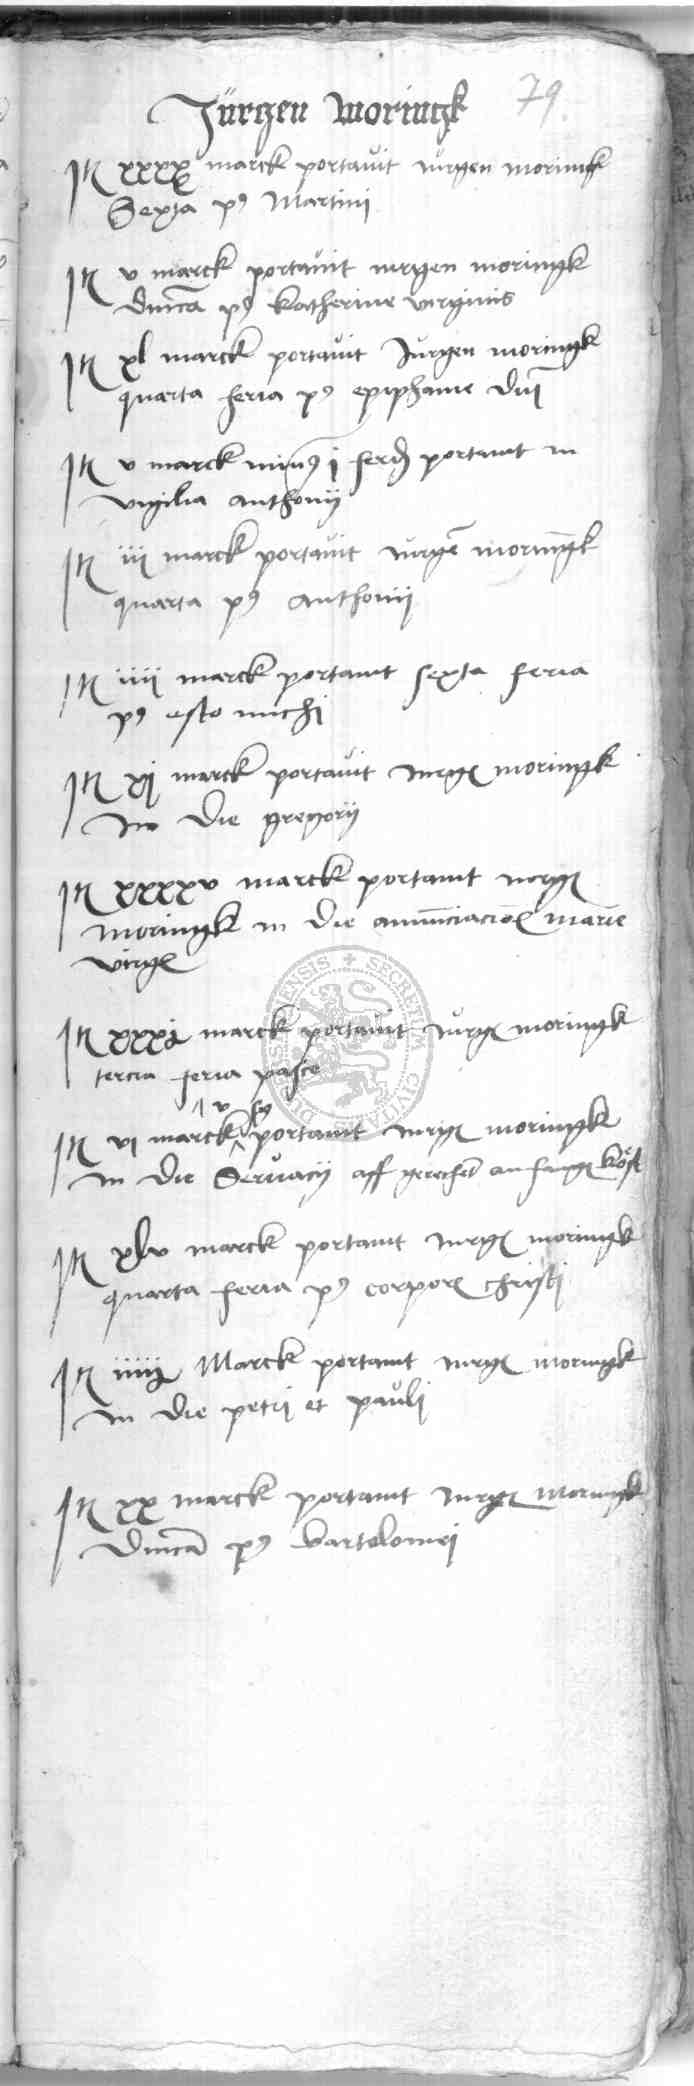 Jürgen Moringk 79
It xxxx marck portavit Jurgen moringk
Sexta p9 Martini
It v marck portavit iurgen moringk
dnica p9 Katherine virginis
It xl marck portavit Jurgen moringk
quarta feria p9 epiphanie dni
It v marck min9 i ferd portavit in
vigilia anthonij
It iii marck portavit iurge moringk
quarta p9 anthonij
It iiii marck portavit sexta feria
p9 esto michi
It xj marck portavit iurge moringk
In die gregorij
It xxxxv marck portavit iurge
moringk in die annunciacion marie
virg
It xxxi marck portavit iurge moringk
tercia feria pasce
v
It vi marck portavit iurge moringk
in die Servacij aff gerechet
It xlv marck portavit iurge moringk
quarta feria p9 corpor christi
It iiii Marck portavit iurge moringk
in die petri et pauli
It xx marck portavit iurge moringk
Dnica p9 bartolomei
SECRETUM CIVITA